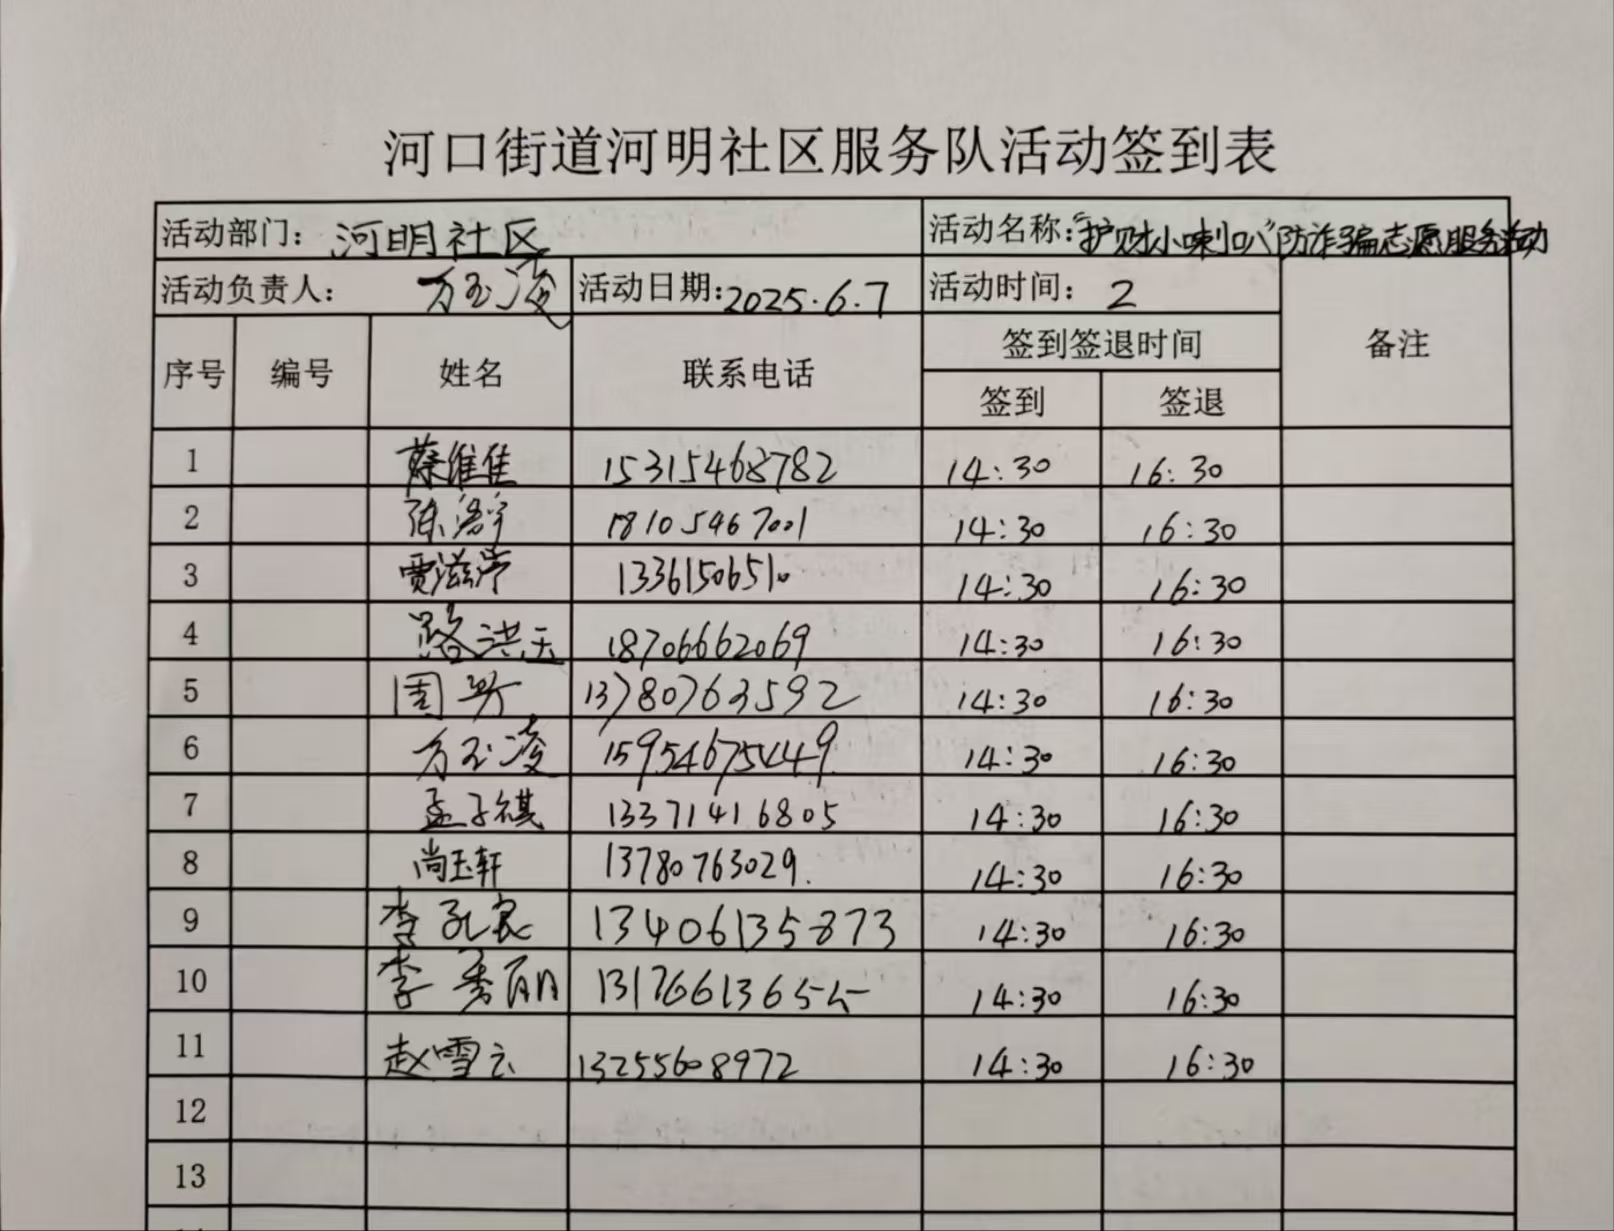 河口街道河明社区服务队活动签到表
活动部门: 河明社区 活动名称:"护财小喇叭"防诈骗志愿服务活动
活动负责人: 方玉凌 活动日期:2025.6.7 活动时间: 2
序号 编号 姓名 联系电话 签到签退时间 备注
签到 签退
1 蔡维佳 15315468782 14:30 16:30
2 陈 18105467001 14:30 16:30
3 贾滋 13361506510 14:30 16:30
4 路洪玉 18706662069 14:30 16:30
5 周 13780763592 14:30 16:30
6 方玉凌 15954675449 14:30 16:30
7 孟子祺 13371416805 14:30 16:30
8 尚玉轩 13780763029. 14:30 16:30
9 李孔良 13406135873 14:30 16:30
10 李秀丽 13176613655 14:30 16:30
11 赵雪云 13255608972 14:30 16:30
12
13